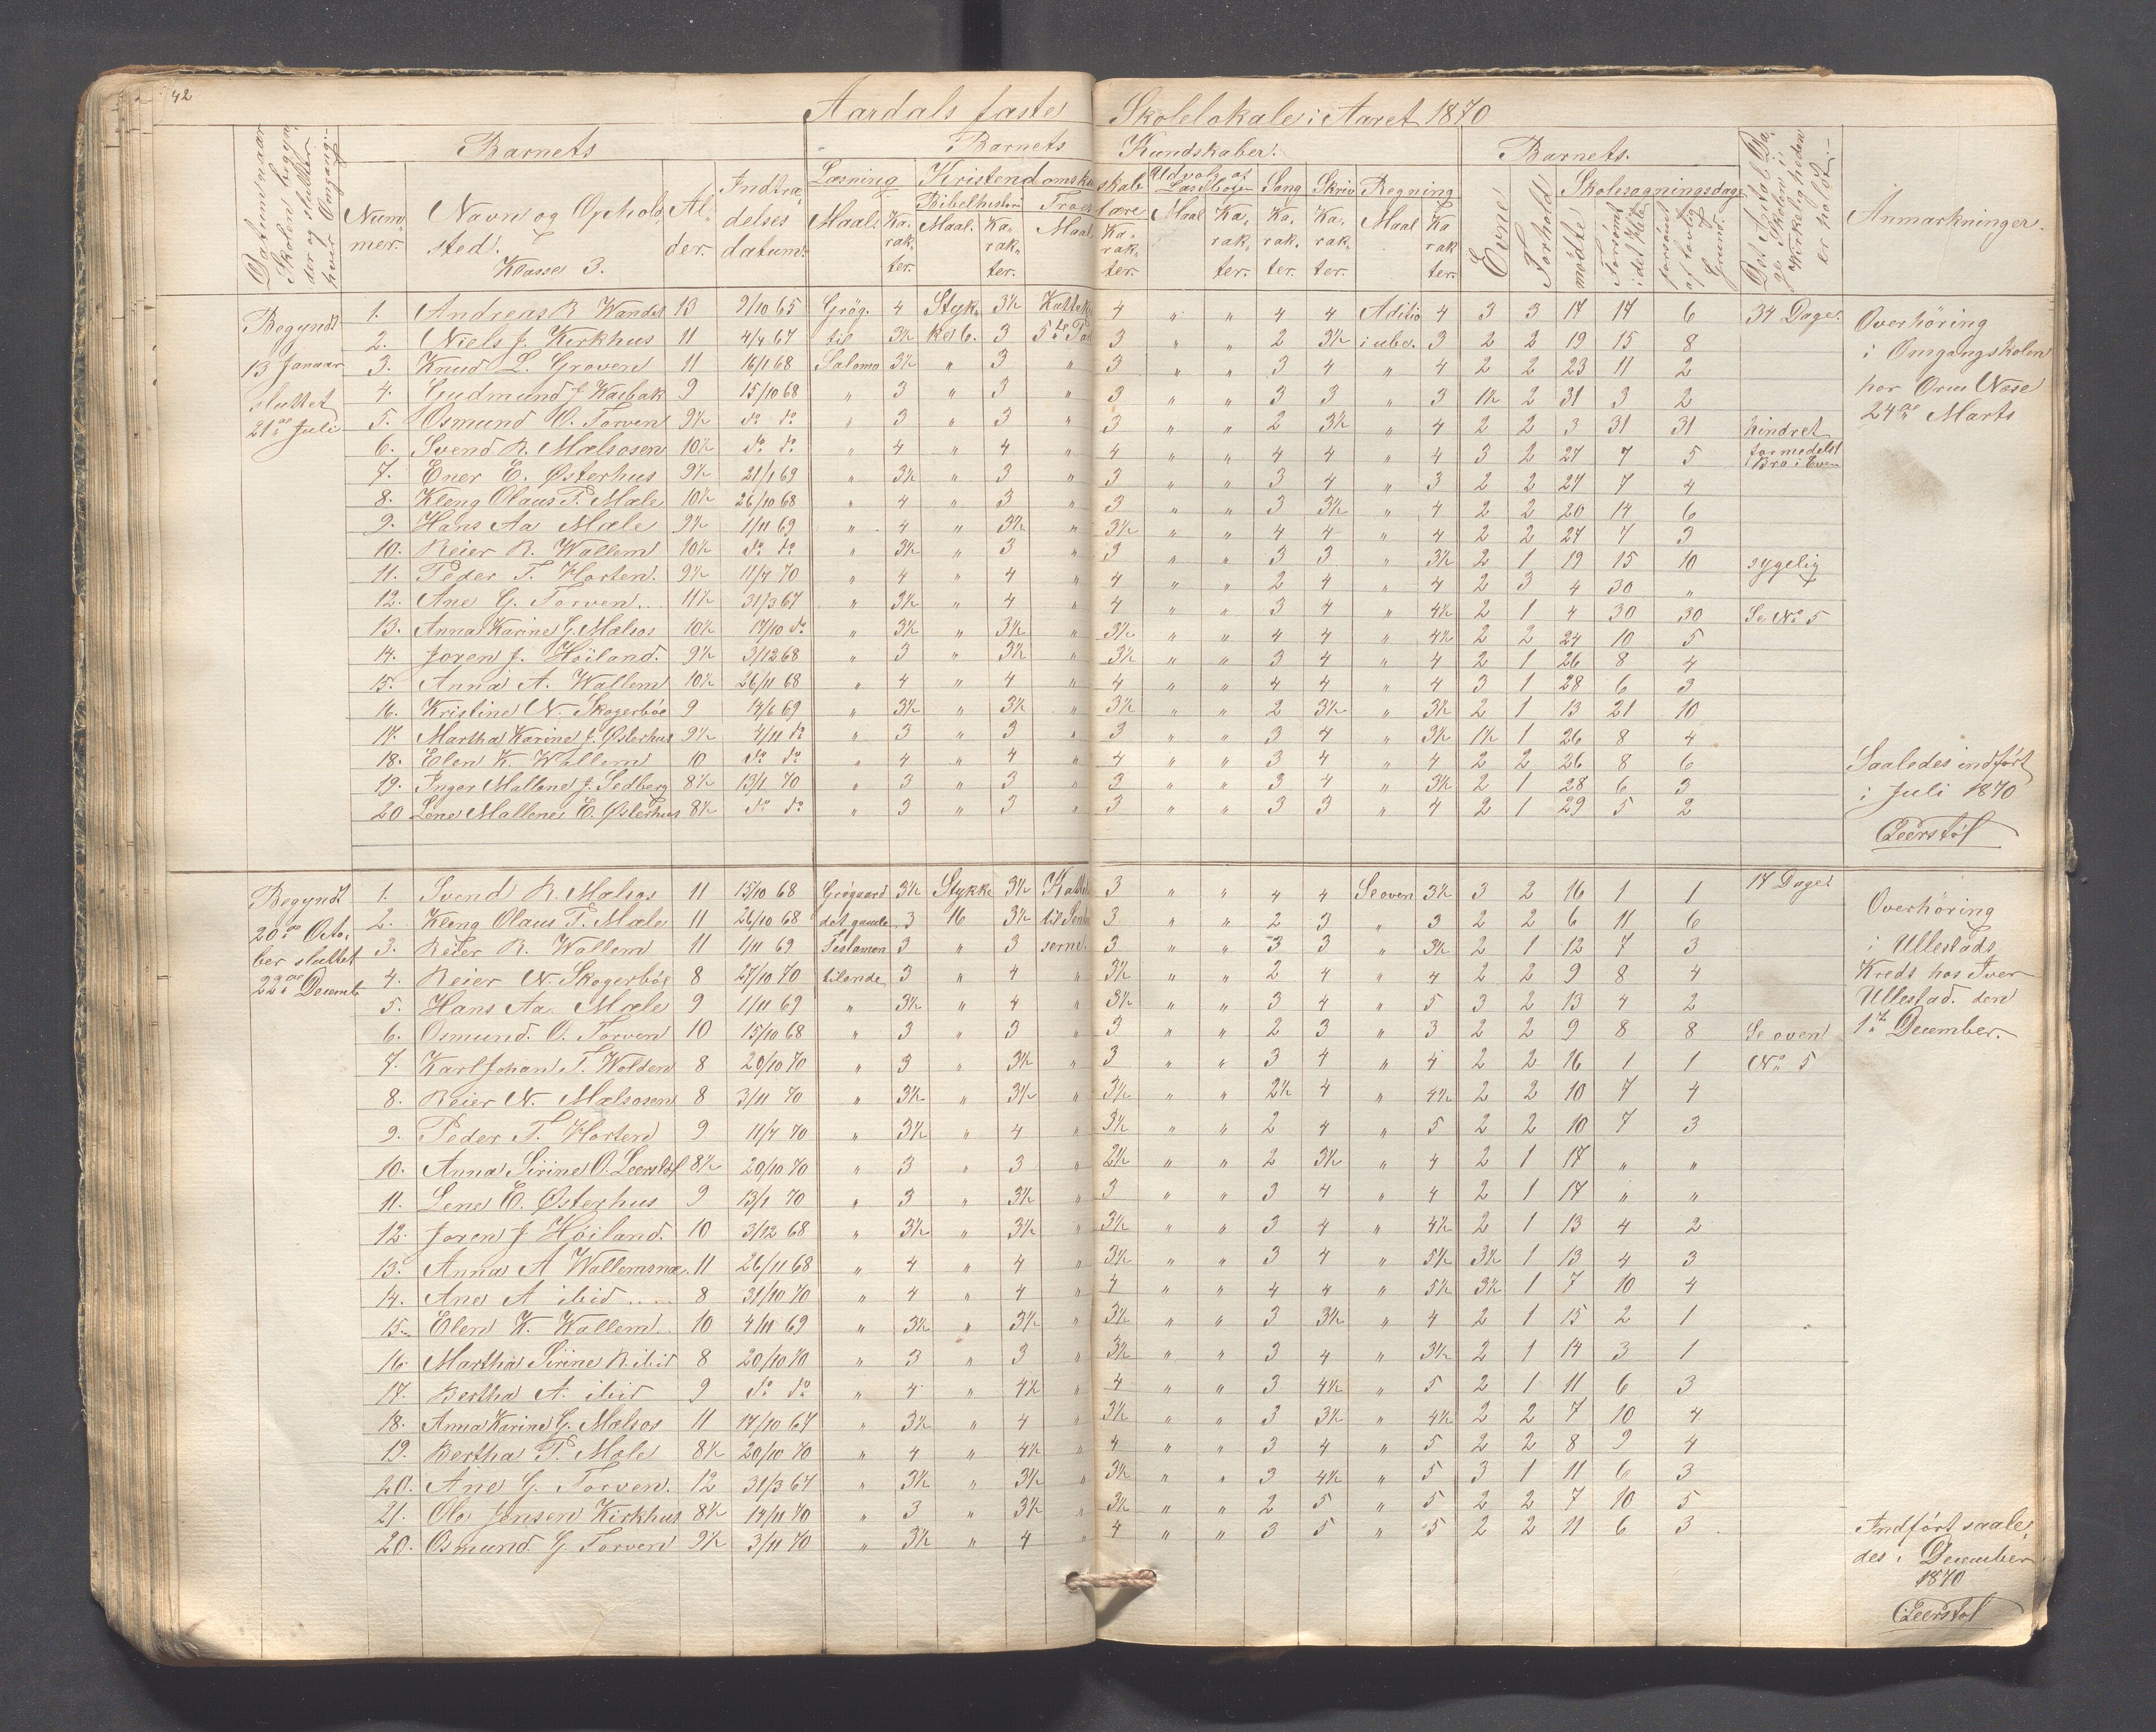 42
Aardals faste Skolelokale i Aaret 1870
Datum naar Skolen begynder og slutter hver Omgang.
Barnets
Nummer.
Navn og Opholdssted.
Klasse 3.
Alder.
Indtrædelses datum.
Barnets Kundskaber.
Læsning
Maal.
Karakter.
Kristendomskundskab
Bibelhistorie
Maal.
Karakter.
Troeslære
Maal.
Karakter.
Udvalg af Læsebogen
Maal
Karakter.
Sang
Karakter.
Skriv
Karakter.
Regning
Maal
Karakter.
Barnets.
Evne
Forhold
Skolesøgningsdage
mødte
Forsømt i det Hele
forsømt af lovlig Grund.
Det Antal Dage Skolen i Virkeligheden er holdt.
Anmærkninger.
Begyndt
13 Januar
sluttet
21de Juli
1. Andreas R Wandes 13 9/10 65 Grøg. 4 Styk. 3½ 4 " " 4 4 Aditio 4 3 3 17 17 6 34 Dage.
2. Niels J. Kirkhus 11 4/4 67 til 3½ ke 6. 3 3 " " 2 3½ i ube. 3 2 2 19 15 8
3. Knud L. Groven 11 16/1 68 Salomo 3½ " 3 " 3 " " 3 4 " 4 2 2 23 11 2
4. Gudmund J Kaibak 9 15/10 68 " 3 " 3 " 3 " " 3 3 " 3 1½ 2 31 3 2
5. Osmund O. Torven 9½ do do " 3 " 3 " 3 " " 2 3½ " 4 2 2 3 31 31 hindret
6. Svend R. Mælsosen 10½ do do " 4 " 4 " 4 " " 4 4 " 4 3 2 27 7 5 formedelst Bro i Even
7. Ener E. Østerhus 9½ 21/1 69 " 3½ " 3 " 3 " " 3 4 " 3 2 2 27 7 4
8. Kleng Olaus T. Mæle 10½ 26/10 68 " 4 " 3 " 3 " " 3 3½ " 4 2 2 20 14 6
9. Hans Aa Mæle 9½ 1/11 69 " 4 " 3½ " 3½ " " 4 4 " 4 2 2 27 7 3
10. Reier R. Wallem 10½ do do " 3½ " 3 " 3 " " 3 3 " 3½ 2 1 19 15 10 sygelig
11. Peder T. Horten. 9½ 11/4 70 " 4 " 4 " 4 " " 2 4 " 4 2 3 4 30 "
12. Ane G. Torven. 11½ 31/3 67 " 3½ " 4 " 4 " " 3 4 " 4½ 2 1 4 30 30 Se No 5
13. Anna Karine G. Mælsos 10½ 17/10 do " 3½ " 3½ " 3½ " " 4 4 " 4½ 2 2 24 10 5
14. Joren J. Høiland. 9½ 3/12 68 " 3 " 3½ " 3½ " " 3 4 " 4 2 1 26 8 4
15. Anna A. Wallem 10½ 26/11 68 " 4 " 4 " 4 " " 4 4 " 4 3 1 28 6 3
16. Kristine N. Skogerbøe 9 14/6 69 " 3½ " 3½ " 3½ " " 2 3½ " 3½ 2 1 13 21 10
17. Martha Karine J. Østerhus 9½ 4/11 do " 3 " 3 " 3 " " 3 4 " 3½ 1½ 1 26 8 4
18. Elen K. Wallem 10 do do " 4 " 4 " 4 " " 3 4 " 4 2 2 26 8 6
19. Inger Mallene J. Sedberg 8½ 13/1 70 " 3 " 3 " 3 " " 3 4 " 3½ 2 1 28 6 3
20 Lene Mallene E. Østerhus 8½ do do " 3 " 3 " 3 " " 3 3 " 4 2 1 29 5 2
Overhøring
i Omgangskolen
hos Orm Næse
24de Marts
Saaledes indført
i Juli 1870
Leerstøl
Begyndt
20de Octo-
ber sluttet
22de Decemb.
1. Svend R. Mælsos 11 15/10 68 Grøgaard 3½ Stykke 3½ 3 " " 4 4 Se oven 3½ 3 2 16 1 1 17 Dage
2. Kleng Olaus T. Mæle 11 26/10 68 det gamle 3 16 3½ 3 " " 2 3 " 3 2 2 6 11 6
3. Reier R. Wallem 11 1/11 69 Testamen 3 " 3 serne. 3 " " 3 3 " 3½ 2 1 12 7 3
4. Reier N. Skogerbøe 8 27/10 70 tilende 3 " 4 " 3½ " " 2 4 " 4 2 2 9 8 4
5. Hans Aa. Mæle 9 1/11 69 " 3½ " 4 " 3½ " " 3 4 " 5 3 2 13 4 2
6. Osmund. O. Torven 10 15/10 68 " 3 " 3 " 3 " " 2 3 " 3 2 2 9 8 8 Se oven
7. Karl Johan T. Wolden 8 20/10 70 " 3 " 3½ " 3 " " 3 4 " 4 2 2 16 1 1 No 5
8. Reier N. Mælsosen 8 3/11 70 " 3½ " 3½ " 3½ " " 2½ 4 " 4½ 2 2 10 7 4
9. Peder T. Horten 9 11/4 70 " 3½ " 4 " 3½ " " 2 4 " 5 2 2 10 7 3
10. Anna Sirine O. Leerstøl 8½ 20/10 70 " 3 " 3 " 2½ " " 2 3½ " 4 2 1 17 " "
11. Lene E. Østerhus 9 13/1 70 " 3 " 3½ " 3 " " 3 4 " 4 2 1 17 " "
12. Joren J Høiland. 10 3/12 68 " 3½ " 3½ " 3½ " " 3 4 " 4½ 2 1 13 4 2
13. Anna A Wallemsnæ. 11 26/11 68 " 4 " 4 " 3½ " " 3 4 " 5½ 3½ 1 13 4 3
14. Ane A ibid 8 31/10 70 " 4 " 4 " 4 " " 4 4 " 5½ 3½ 1 7 10 4
15. Elen K. Wallem. 10 4/11 69 " 3½ " 3½ " 3½ " " 3 3½ " 4 2 1 15 2 1
16. Martha Sirine R. ibid 8 20/10 70 " 3 " 3 " 3½ " " 3 4 " 3½ 2 1 14 3 1
17. Bertha A. ibid 9 do do " 4 " 4½ " 4 " " 3 4½ " 5 2 1 11 6 3
18. Anna Karine G. Mælsos 11 17/10 67 " 3½ " 4 " 3½ " " 3 3½ " 4½ 2 2 7 10 4
19. Bertha T. Mæle 8½ 20/10 70 " 4 " 4½ " 4 " " 3 4 " 5 2 2 8 9 4
20. Ane G. Torven. 12 31/3 67 " 3½ " 3½ " 3½ " " 3 4½ " 5 3 1 11 6 3
21. Ole Jensen Kirkhus 8½ 14/11 70 " 3 " 3½ " 3½ " " 2 5 " 5 2 2 7 10 5
20. Osmund G. Torven 9½ 3/11 70 " 3½ " 4 " 4 " " 3 5 " 5 2 2 11 6 3
Overhøring
i Ullestads
Kreds hos Iver
Ullestad. den
1ste December.
Indført saale-
des i December
1870
Leerstøl